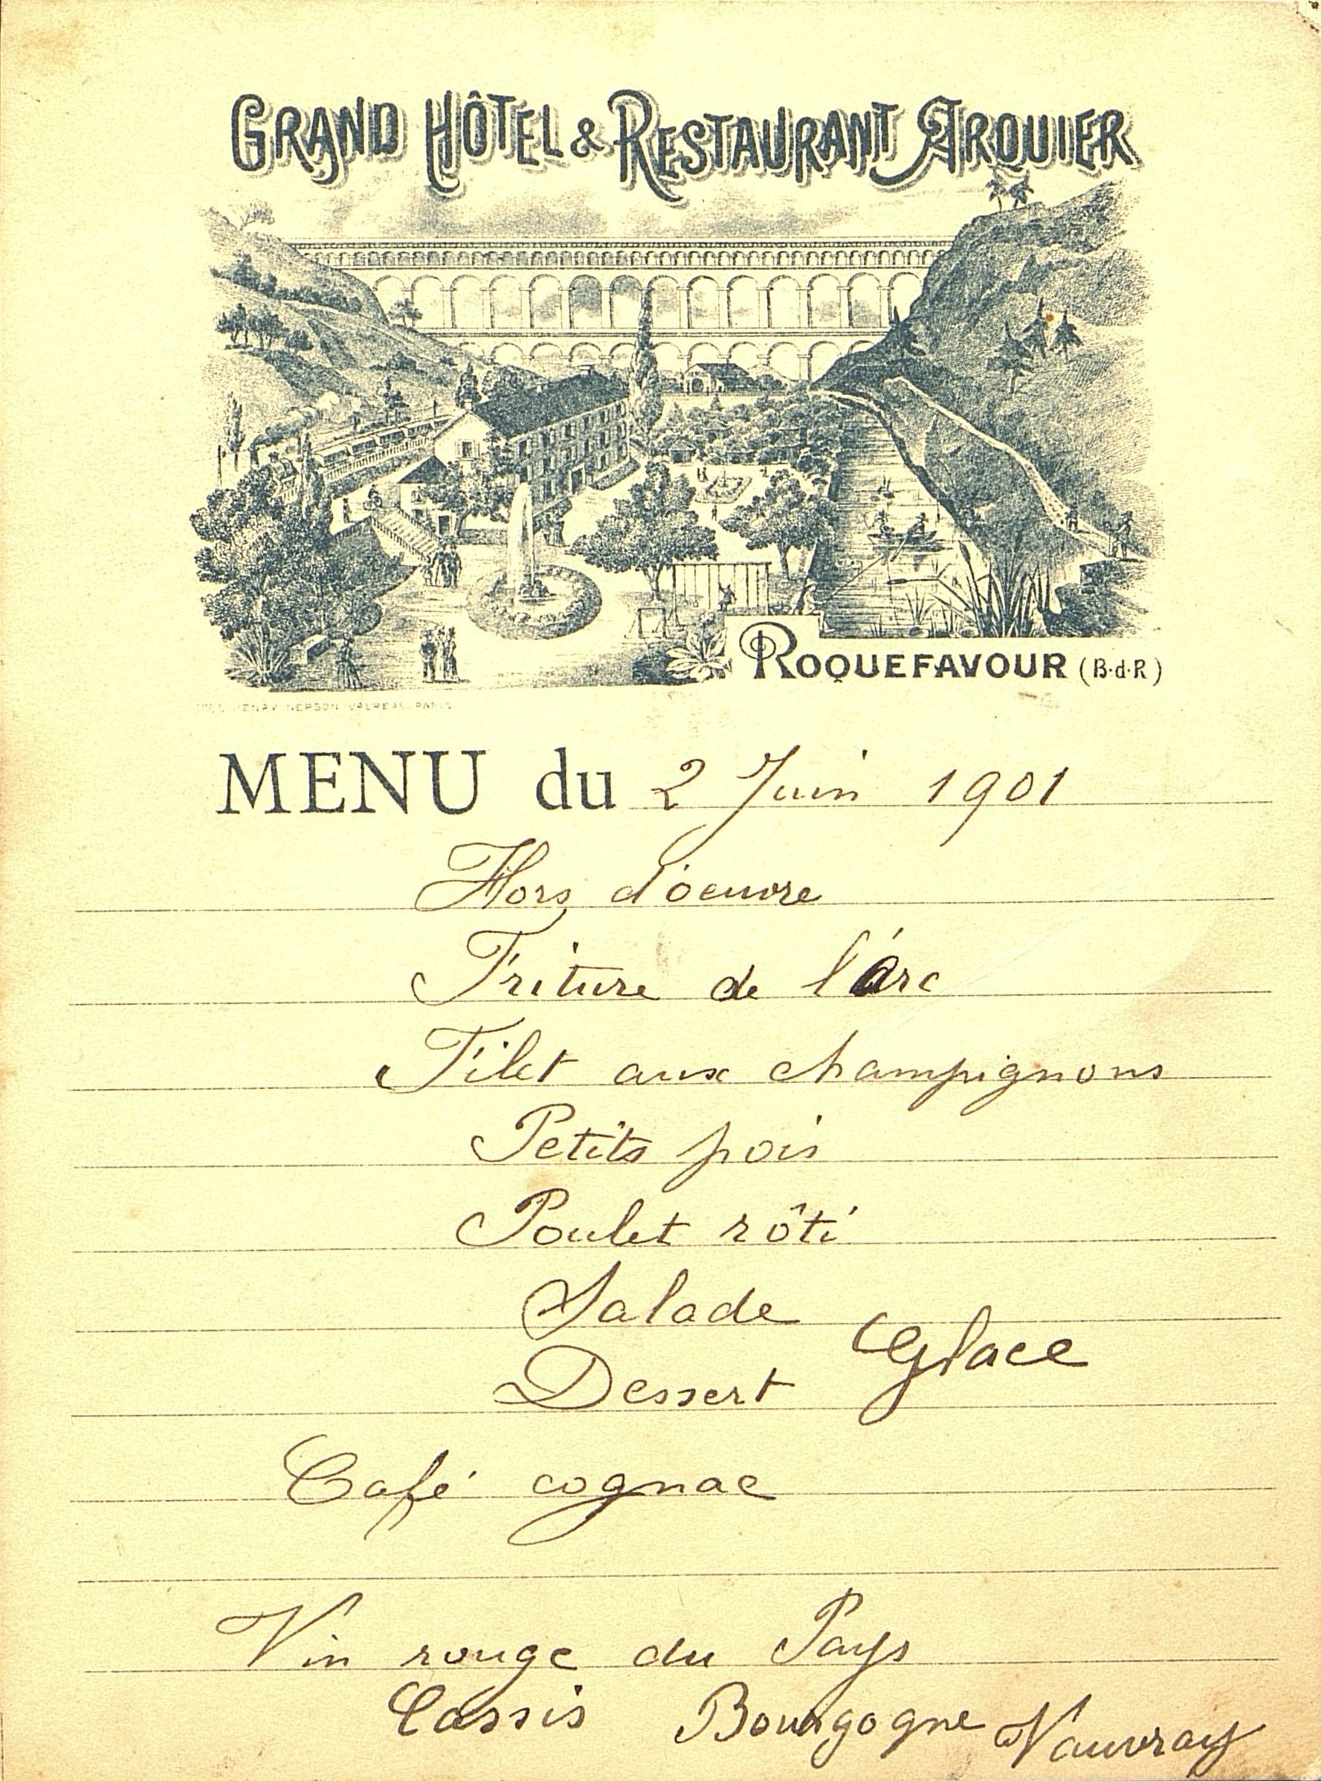 GRAND HÔTEL & RESTAURANT ARQUIER
ROQUEFAVOUR (B·d·R)
MENU du 2 Juin 1901
Hors d'oeuvre
Friture de l'Arc
Filet aux champignons
Petits pois
Poulet rôti
Salade
Glace
Dessert
Café cognac
Vin rouge du Pays
Cassis Bourgogne Vauvray